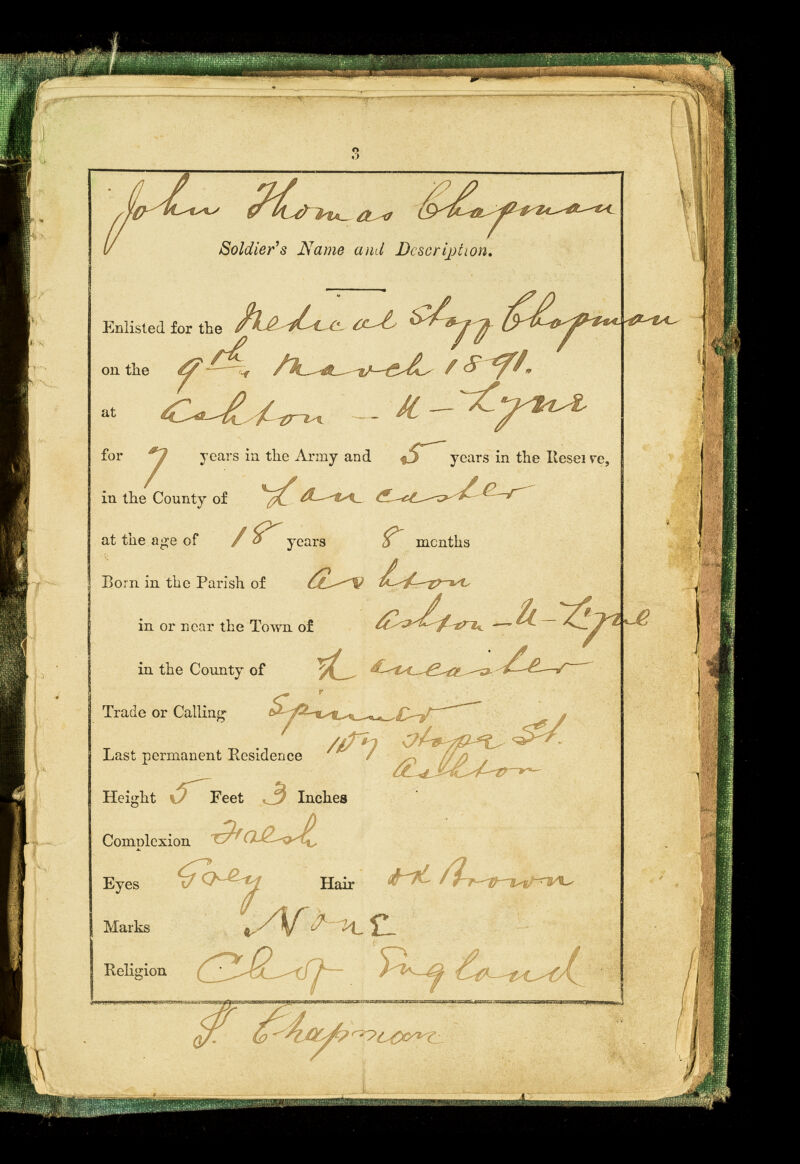 3
John Thomas Chapman
Soldier's Name and Description.
Enlisted for the Medical Staff Chapman
on the 9th March 1891.
at Ashton - U - Lyne
for 7 years in the Army and 5 years in the Reserve,
in the County of Lancaster
at the age of 18 years 8 months
Born in the Parish of Ashton
in or near the Town of Ashton - U - Lyne
in the County of Lancaster
Trade or Calling Spinner
Last permanent Residence 157 Hope St.
Ashton
Height 5 Feet 3 Inches
Complexion Fresh
Eyes Grey Hair dk Brown
Marks None
Religion Ch of England
J. Chapman